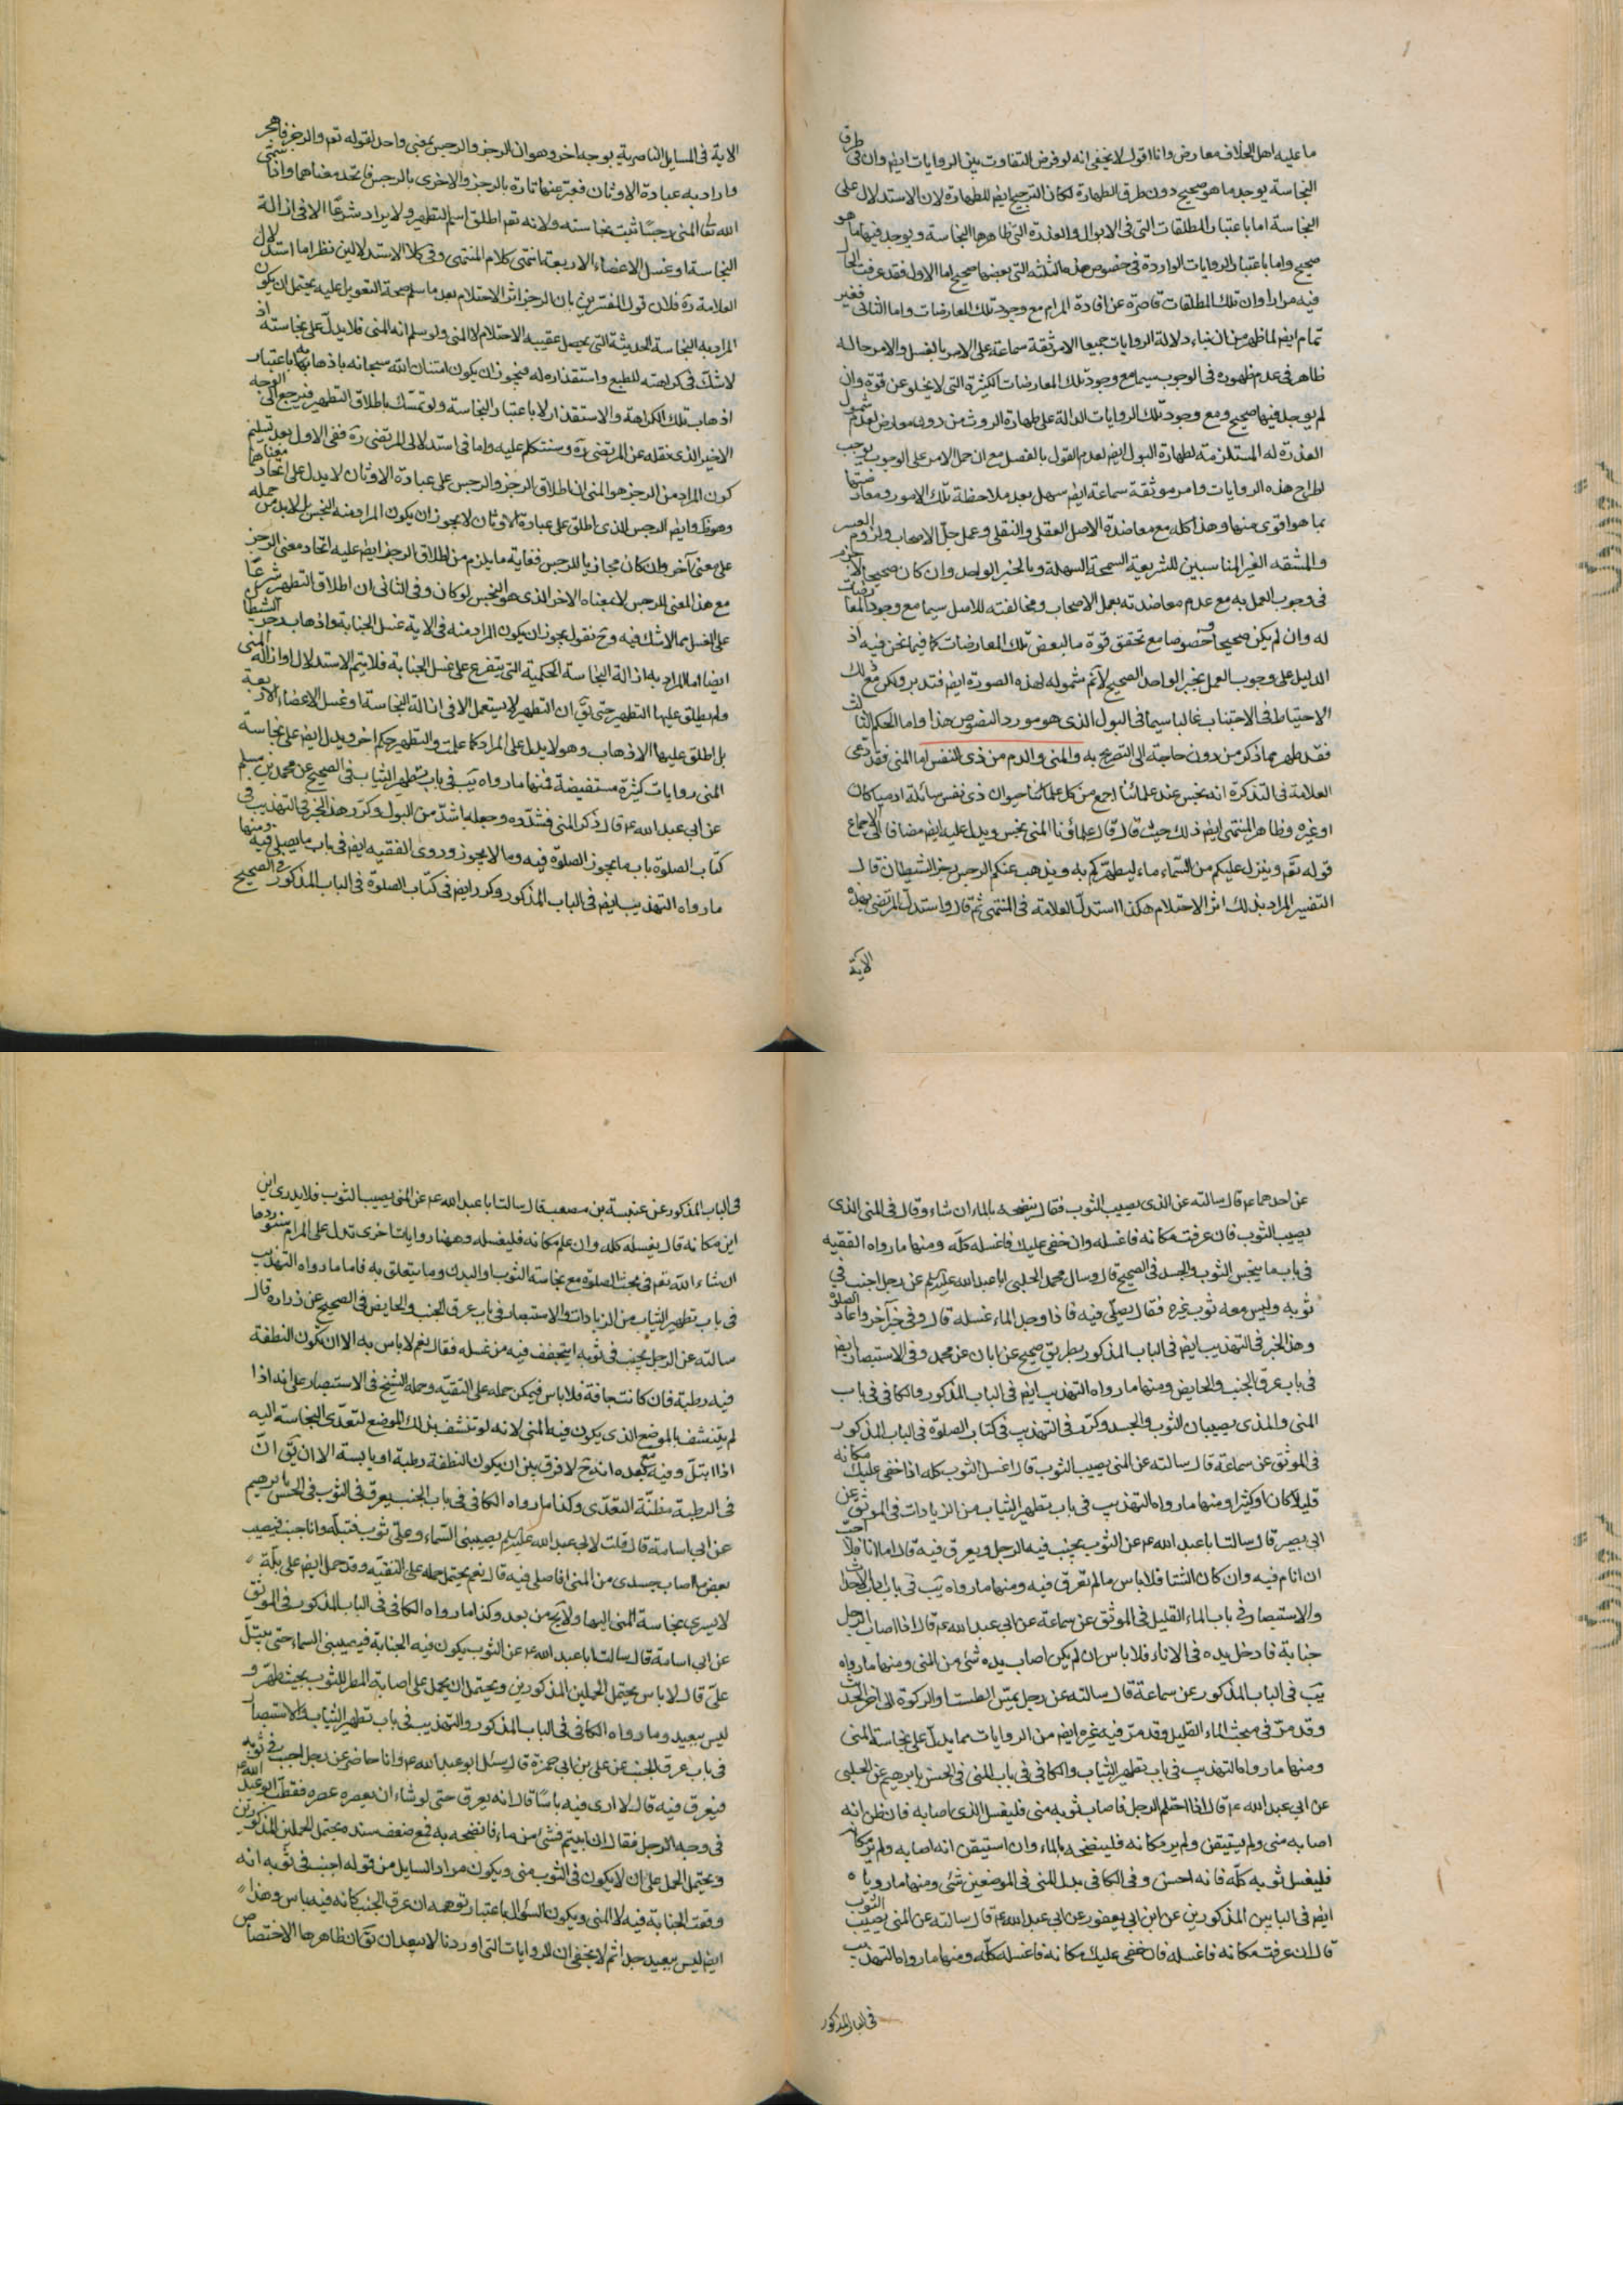 ما عليه اهل الخلاف معارض وانا اقول لا يخفى انه لو فرض التفاوت بين الروايات ايضا وان في طرق
النجاسة يوجد ما هو صحيح دون طرق الطهارة لكان الترجيح ايضا للطهارة لان الاستدلال على
النجاسة اما باعتبار المطلقات التى فى الابوال والعذرة التى ظاهرها النجاسة ويوجد فيها ما هو
صحيح واما باعتبار الروايات الواردة فى خصوص هذه الثلثه التى بعضها صحيح اما الاول فقد عرفت الحال
فيه مرارا وان تلك المطلقات قاصرة عن افادة المرام مع وجود تلك المعارضات واما الثانى فغير
تمام ايضا لما ظهر من ان بناء دلالة الروايات جميعا الا موثقة سماعة على الامر بالغسل والامر حاله
ظاهر فى عدم ظهوره فى الوجوب سيما مع وجود تلك المعارضات الكثيرة التى لا يخلو عن قوة وان
لم يوجد فيها صحيح ومع وجود تلك الروايات الدالة على طهارة الروث من دون معارض لعدم شمول
العذرة له المستلزمة لطهارة البول ايضا لعدم القول بالفصل مع ان حمل الامر على الوجوب يوجب
اطراح هذه الروايات وامر موثقة سماعة ايضا سهل بعد ملاحظة تلك الامور ومعارضتها
بما هو اقوى منها وهذا كله مع معاضدة الاصل العقلى والنقلى وعمل جل الاصحاب ولزوم العسر
والمشقه الغير المناسبين للشريعة السمحة السهلة وبالخبر الواحد وان كان صحيحا لا جزم
فى وجوب العمل به مع عدم معاضدته بعمل الاصحاب ومخالفته للاصل سيما مع وجود المعارضات
له وان لم يكن صحيحا وخصوصا مع تحقق قوة ما لبعض تلك المعارضات كما فيما نحن فيه اذ
الدليل على وجوب العمل بخبر الواحد الصحيح لا نم شموله لهذه الصورة ايضا فتدبر ولكن مع ذلك
الاحتياط فى الاجتناب غالبا سيما فى البول الذى هو مورد النصوص هذا واما الحكم الثالث
فقد ظهر مما ذكر من دون حاجة الى التصريح به والمنى والدم من ذى النفس اما المنى فقد ادعى
العلامة فى التذكرة انه نجس عند علمائنا اجمع من كل حيوان ذى نفس سائلة ادميا كان
او غيره وظاهر المنتهى ايضا ذلك حيث قال قال علماؤنا المنى نجس ويدل عليه ايضا مضافا الى الاجماع
قوله تع وينزل عليكم من السماء ماء ليطهركم به ويذهب عنكم الرجس رجز الشيطان قال
التفسير المراد بذلك اثر الاحتلام هكذا استدل العلامة فى المنتهى ثم قال واستدل المرتضى بهذه
الاية
الاية فى المسايل الناصرية بوجه اخر وهو ان الرجز والرجس بمعنى واحد لقوله تع والرجز فاهجر
واراد به عبادة الاوثان فعبر عنها تارة بالرجز والاخرى بالرجس فاتحد معناهما واذا سمى
الله تعا المنى رجسا ثبت نجاسته ولانه تع اطلق اسم التطهير ولا يراد شرعا الا فى ازالة
النجاسة او غسل الاعضاء الاربعة انتهى كلام المنتهى وفى كلا الاستدلالين نظر اما استدلال
العلامة ره فلان قول المفسرين بان الرجز اثر الاحتلام بعد ما سلم صحة التعويل عليه يحتمل ان يكون
المراد به النجاسة الحديثة التى يحصل عقيب الاحتلام لا المنى ولو سلم انه المنى فلا يدل على نجاسته اذ
لا شك فى كراهته للطبع واستقذاره له فيجوز ان يكون امتنان الله سبحانه باذهابه باعتبار
اذهاب تلك الكراهة والاستقذار لا باعتبار النجاسة ولو تمسك باطلاق التطهير فيرجع الى الوجه
الاخير الذى نقله عن المرتضى ره وسنتكلم عليه واما فى استدلال المرتضى ره ففى الاول بعد تسليم
كون المراد من الرجز هو المنى ان اطلاق الرجز والرجس على عبادة الاوثان لا يدل على اتحاد معناهما
وهو ظ وايضا الرجس الذى اطلق على عبادة الاوثان لا يجوز ان يكون المراد منه النجس بل لا بد من حمله
على معنى آخر وان كان مجازيا للرجس فغاية ما يلزم من اطلاق الرجز ايضا عليه اتحاد معنى الرجز
مع هذا المعنى للرجس لا معناه الاخر الذى هو النجس لو كان وفى الثانى ان اطلاق التطهير شرعا
على الغسل مما لا شك فيه وح نقول يجوز ان يكون المراد منه فى الاية غسل الجنابة واذهاب رجز الشيطان
ايضا اما المراد به ازالة النجاسة الحكمية التى يتفرع على غسل الجنابة فلا يتم الاستدلال او ازالة المنى
ولم يطلق عليها التطهير حتى يق ان التطهير لا يستعمل الا فى ازالة النجاسة او غسل الاعضاء الاربعة
بل اطلق عليها الاذهاب وهو لا يدل على المراد كما علمت والتطهير حكم اخر ويدل ايضا على نجاسة
المنى روايات كثيرة مستفيضة فمنها ما رواه يب فى باب تطهير الثياب فى الصحيح عن محمد بن مسلم
عن ابى عبد الله ع قال ذكر المنى فشدده وجعله اشد من البول وكرر هذا الخبر فى التهذيب فى
كتاب الصلوة باب ما يجوز الصلوة فيه وما لا يجوز وروى الفقيه ايضا فى باب ما يصلى فيه ومنها
ما رواه التهذيب ايضا فى الباب المذكور وكرر ايضا فى كتاب الصلوة فى الباب المذكور فى الصحيح
عن احدهما ع قال سالته عن الذى يصيب الثوب فقال ينضحه بالماء ان شاء وقال فى المنى الذى
يصيب الثوب فان عرفت مكانه فاغسله وان خفى عليك فاغسله كله ومنها ما رواه الفقيه
فى باب ما ينجس الثوب والجسد فى الصحيح قال وسال محمد الحلبى ابا عبد الله عليه السلم عن رجل اجنب فى
ثوبه وليس معه ثوب غيره فقال يصلى فيه فاذا وجد الماء غسله قال وفى خبر آخر واعاد الصلوة
وهذا الخبر فى التهذيب ايضا فى الباب المذكور بطريق صحيح عن ابان عن محمد وفى الاستبصار ايضا
فى باب عرق الجنب والحايض ومنها ما رواه التهذيب ايضا فى الباب المذكور والكافى فى باب
المنى والمذى يصيبان الثوب والجسد وكرر فى التهذيب فى كتاب الصلوة فى الباب المذكور
فى الموثق عن سماعة قال سالته عن المنى يصيب الثوب قال اغسل الثوب كله اذا خفى عليك مكانه
قليلا كان او كثيرا ومنها ما رواه التهذيب فى باب تطهير الثياب من الزيادات فى الموثق عن
ابى بصير قال سالت ابا عبد الله ع عن الثوب يجنب فيه الرجل ويعرق فيه قال اما انا فلا احب
ان انام فيه وان كان الشتا فلا باس ما لم تعرق فيه ومنها ما رواه يب فى باب اداب الاحداث
والاستبصار فى باب الماء القليل فى الموثق عن سماعة عن ابى عبد الله ع قال اذا اصاب الرجل
جنابة فادخل يده فى الاناء فلا باس ان لم يكن اصاب يده شئ من المنى ومنها ما رواه
يب فى الباب المذكور عن سماعة قال سالته عن رجل يمس الطست او الركوة الى اخر الحديث
وقد مر فى مبحث الماء القليل وقد مر فيه غيره ايضا من الروايات مما يدل على نجاسة المنى
ومنها ما رواه التهذيب فى باب تطهير الثياب والكافى فى باب المنى فى الحسن بابرهيم عن الحلبى
عن ابى عبد الله ع قال اذا احتلم الرجل فاصاب ثوبه منى فليغسل الذى اصابه فان ظن انه
اصابه منى ولم يستيقن ولم ير مكانه فلينضحه بالماء وان استيقن انه اصابه ولم ير مكانه
فليغسل ثوبه كله فانه احسن وفى الكافى بدل المنى فى الموضعين شئ ومنها ما روياه
ايضا فى البابين المذكورين عن ابن ابى يعفور عن ابى عبد الله ع قال سالته عن المنى يصيب الثوب
قال ان عرفت مكانه فاغسله فان خفى عليك مكانه فاغسله كله ومنها ما رواه التهذيب
فى الباب المذكور
فى الباب المذكور عن عنبسة بن مصعب قال سالت ابا عبد الله ع عن المنى يصيب الثوب فلا يدرى اين
اين مكانه قال يغسله كله وان علم مكانه فليغسله وههنا روايات اخرى تدل على المرام سنوردها
ان شاء الله تع فى مبحث الصلوة مع نجاسة الثوب او البدن وما يتعلق به فاما ما رواه التهذيب
فى باب تطهير الثياب من الزيادات والاستبصار فى باب عرق الجنب والحايض فى الصحيح عن زرارة قال
سالته عن الرجل يجنب فى ثوبه ايتجفف فيه من غسله فقال نعم لا باس به الا ان تكون النطفة
فيه رطبة فان كانت جافة فلا باس فيمكن حمله على التقيه وحمله الشيخ فى الاستبصار على انه اذا
لم يتنشف بالموضع الذى يكون فيه المنى لانه لو تنشف بذلك الموضع لتعدى النجاسة اليه
اذا ابتل وفيه مع بعده انه ح لا فرق بين ان يكون النطفة رطبة او يابسة الا ان يق ان
فى الرطبة مظنة التعدى وكذا ما رواه الكافى فى باب الجنب يعرق فى الثوب فى الحسن بابرهيم
عن ابى اسامة قال قلت لابى عبد الله عليه السلم يصيبنى السماء وعلى ثوب فتبله وانا جنب فيصيب
بعض ما اصاب جسدى من المنى افاصلى فيه قال نعم يحتمل حمله على التقيه وقد حمل ايضا على بلة
لا يسرى نجاسة المنى اليها ولا يخ من بعد وكذا ما رواه الكافى فى الباب المذكور فى الموثق
عن ابى اسامة قال سالت ابا عبد الله ع عن الثوب يكون فيه الجنابة فيصيبنى السماء حتى يبتل
على قال لا باس يحتمل الحملين المذكورين ويحتمل ان يحمل على اصابة المطر للثوب بحيث طهر و
ليس ببعيد وما رواه الكافى فى الباب المذكور والتهذيب فى باب تطهير الثياب والاستبصار
فى باب عرق الجنب عن على بن ابى حمزة قال سئل ابو عبد الله ع وانا حاضر عن رجل اجنب فى ثوبه
فيعرق فيه قال لا ارى فيه باسا قال انه يعرق حتى لو شاء ان يعصره عصره فقطب ابو عبد الله ع
فى وجه الرجل فقال ان ابيتم فشئ من ماء فانضحه به فمع ضعف سنده يحتمل الحملين المذكورين
ويحتمل الحمل على ان لا يكون فى الثوب منى ويكون مراد السايل من قوله اجنب فى ثوبه انه
وقعت الجنابة فيه لا المنى ويكون السؤال باعتبار توهمه ان عرق الجنب كانه فيه باس وهذا
ايضا ليس ببعيد جدا ثم لا يخفى ان الروايات التى اوردنا لا يبعد ان يق ان ظاهرها الاختصاص